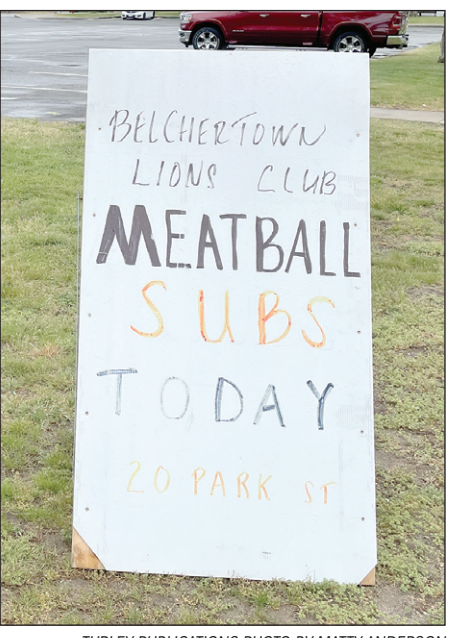 BELCHERTOWN
LIONS CLUB
MEATBALL
SUBS
TODAY
20 PARK ST
TURLEY PUBLICATIONS PHOTO BY MATTY ANDERSON